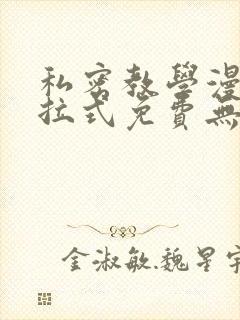 私密教學漫
拉式免費無
金淑敏.魏星宇